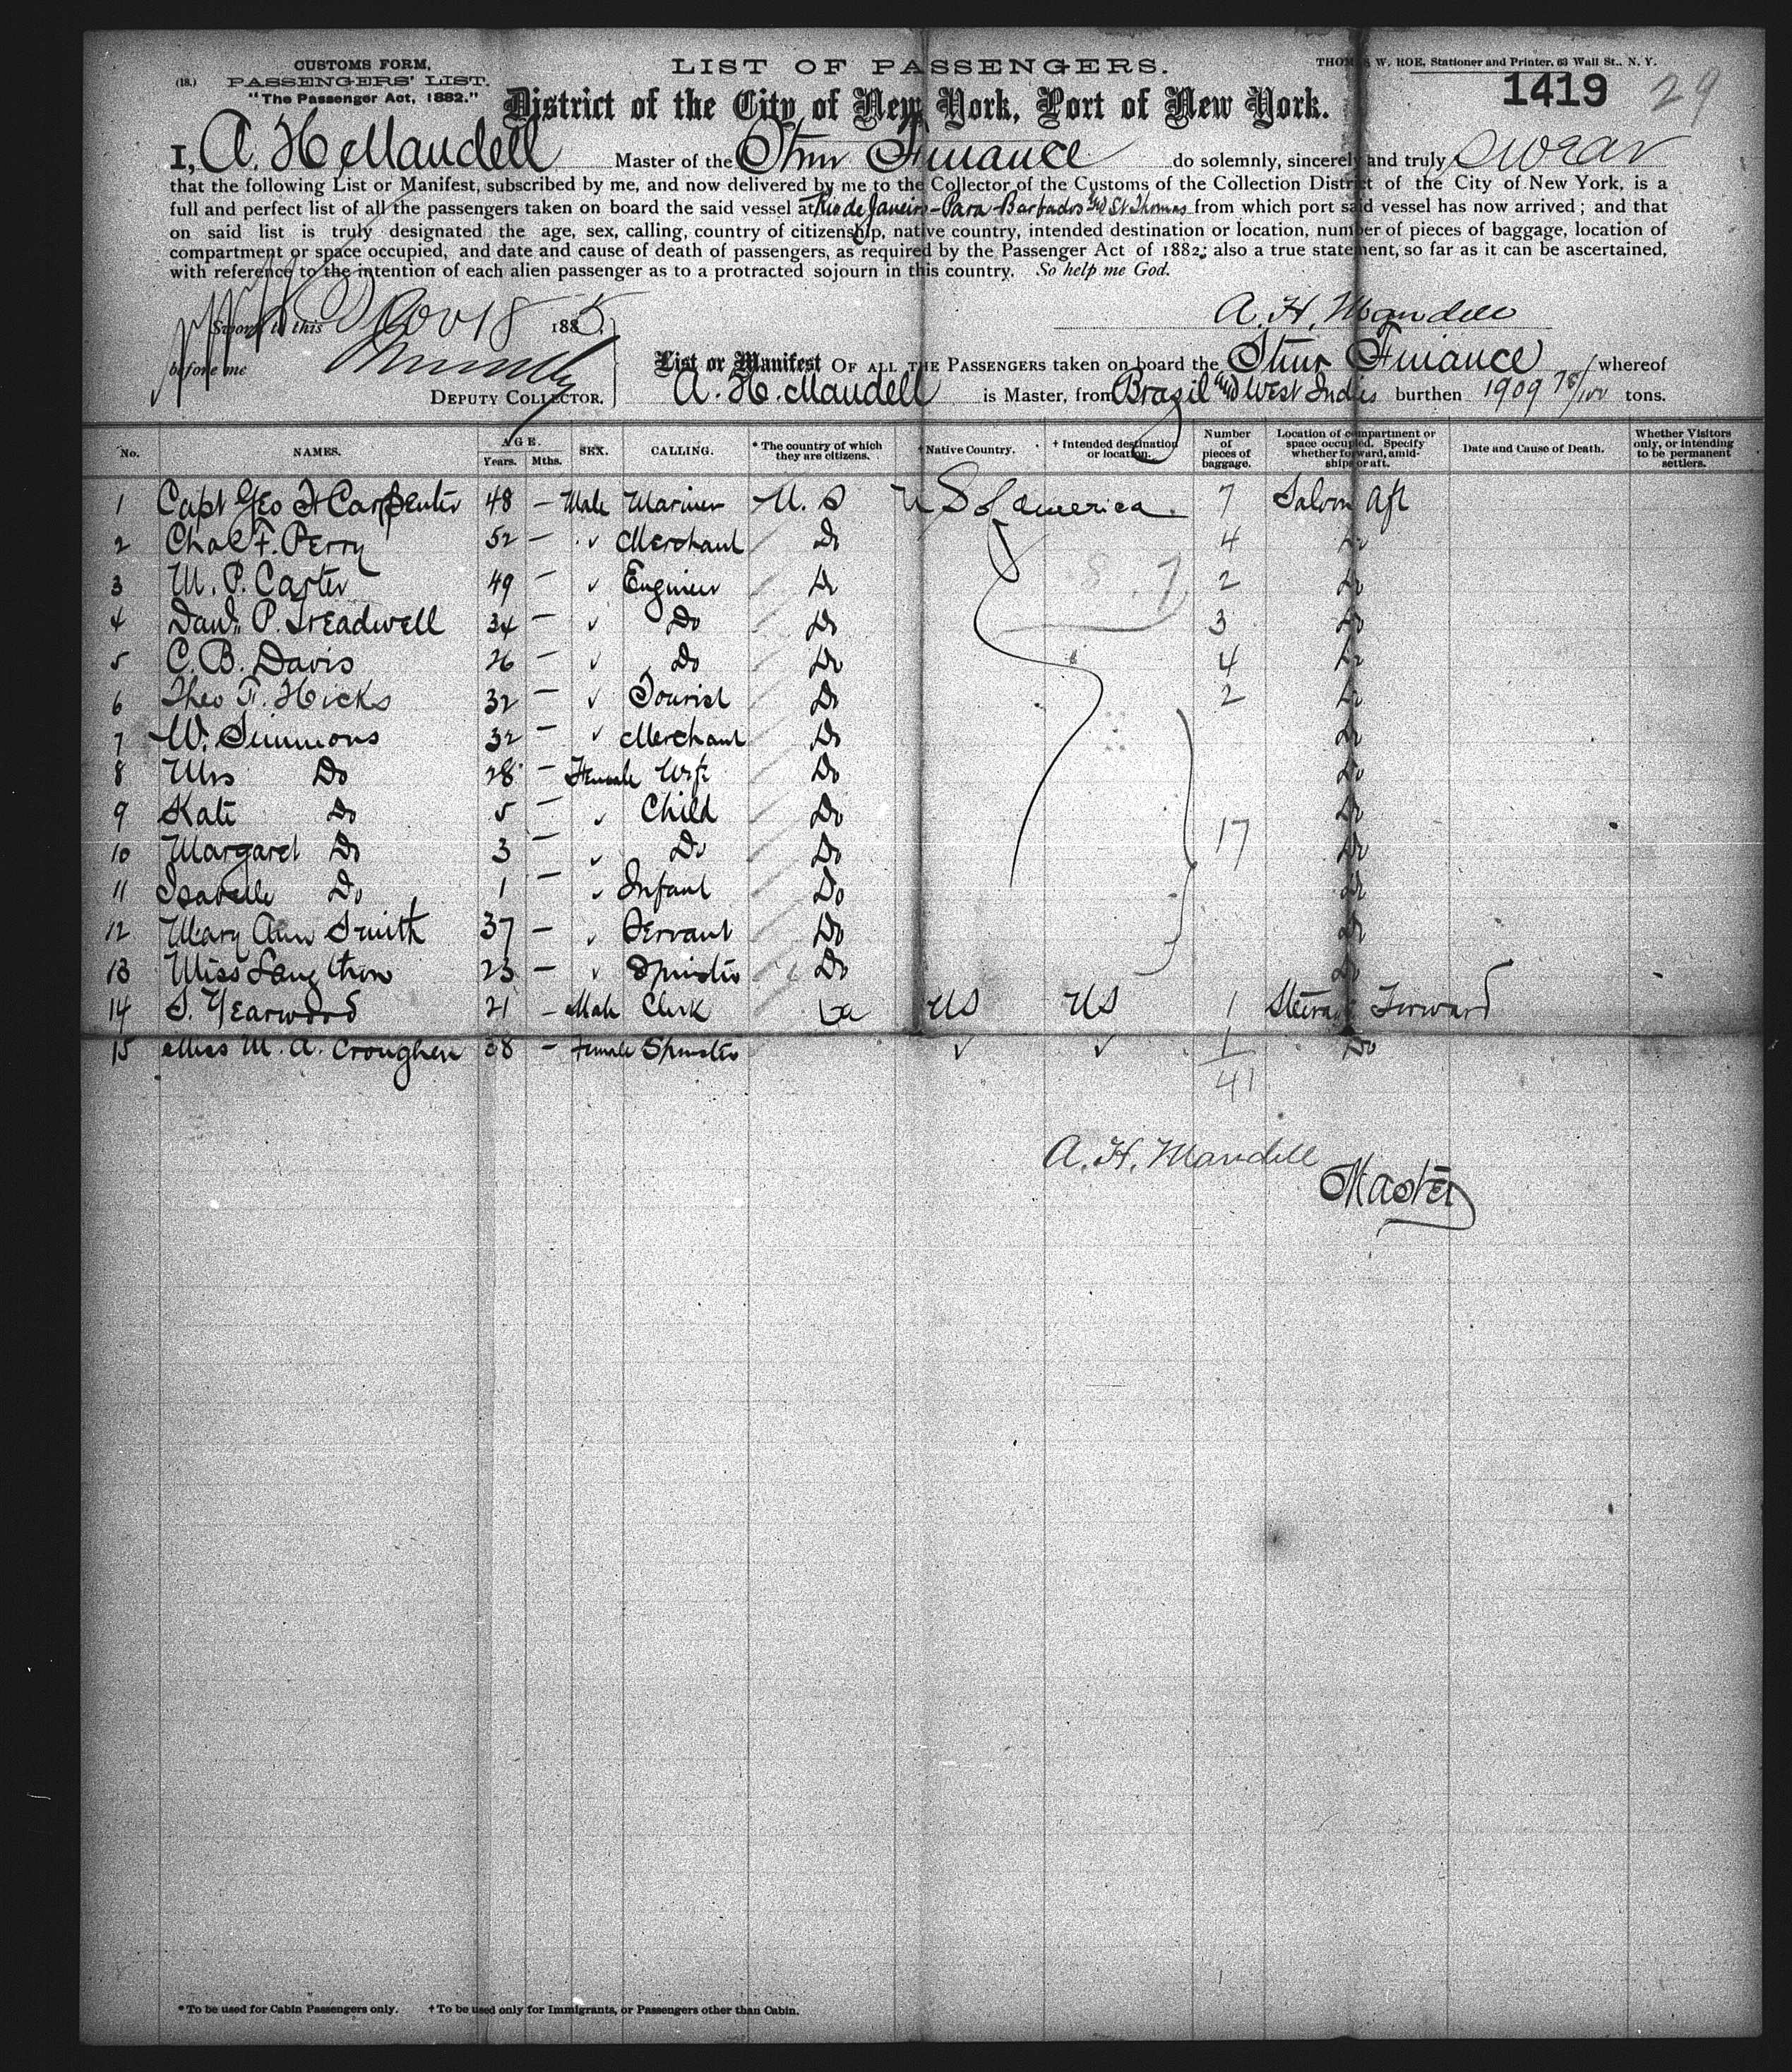 CUSTOMS FORM,
(18.) PASSENGERS' LIST.
"The Passenger Act, 1882."
LIST OF PASSENGERS.
THOMAS W. ROE, Stationer and Printer, 63 Wall St., N. Y.
1419 29
District of the City of New York, Port of New York.
I, A. H. Mandell Master of the Stmr Finance do solemnly, sincerely and truly swear
that the following List or Manifest, subscribed by me, and now delivered by me to the Collector of the Customs of the Collection District of the City of New York, is a
full and perfect list of all the passengers taken on board the said vessel at Rio de Janeiro - Para - Barbados and St Thomas from which port said vessel has now arrived; and that
on said list is truly designated the age, sex, calling, country of citizenship, native country, intended destination or location, number of pieces of baggage, location of
compartment or space occupied, and date and cause of death of passengers, as required by the Passenger Act of 1882; also a true statement, so far as it can be ascertained,
with reference to the intention of each alien passenger as to a protracted sojourn in this country. So help me God.
Sworn to this Nov 18 1885
A. H. Mandell
before me
DEPUTY COLLECTOR.
List or Manifest OF ALL THE PASSENGERS taken on board the Stmr Finance whereof
A. H. Mandell is Master, from Brazil and West Indies burthen 1909 78/100 tons.
No. NAMES. AGE. Years. Mths. SEX. CALLING. * The country of which they are citizens. † Native Country. † Intended destination or location. Number of pieces of baggage. Location of compartment or space occupied. Specify whether forward, amidships or aft. Date and Cause of Death. Whether Visitors only, or intending to be permanent settlers.
1 Capt Geo H Carpenter 48 — Male Mariner U. S U S of America 7 Saloon Aft
2 Chas F. Perry 52 — ✓ Merchant Do 4 Do
3 M. P. Carter 49 — ✓ Engineer Do 2 Do
4 Danl. P. Treadwell 34 — ✓ Do Do 3 Do
5 C. B. Davis 26 — ✓ Do Do 4 Do
6 Theo F. Hicks 32 — ✓ Tourist Do 2 Do
7 W. Simmons 32 — ✓ Merchant Do Do
8 Mrs Do 28 — Female Wife Do Do
9 Kate Do 5 — ✓ Child Do Do
10 Margaret Do 3 — ✓ Do Do 17 Do
11 Isabelle Do 1 — ✓ Infant Do Do
12 Mary Ann Smith 37 — ✓ Servant Do Do
13 Miss 23 — ✓ Spinster Do Do
14 S. Yearwood 21 — Male Clerk US US 1 Steerage Forward
15 Miss M. A. Croughen 38 — Female Spinster ✓ ✓ 1 Do
41
A. H. Mandell
Master
* To be used for Cabin Passengers only. † To be used only for Immigrants, or Passengers other than Cabin.